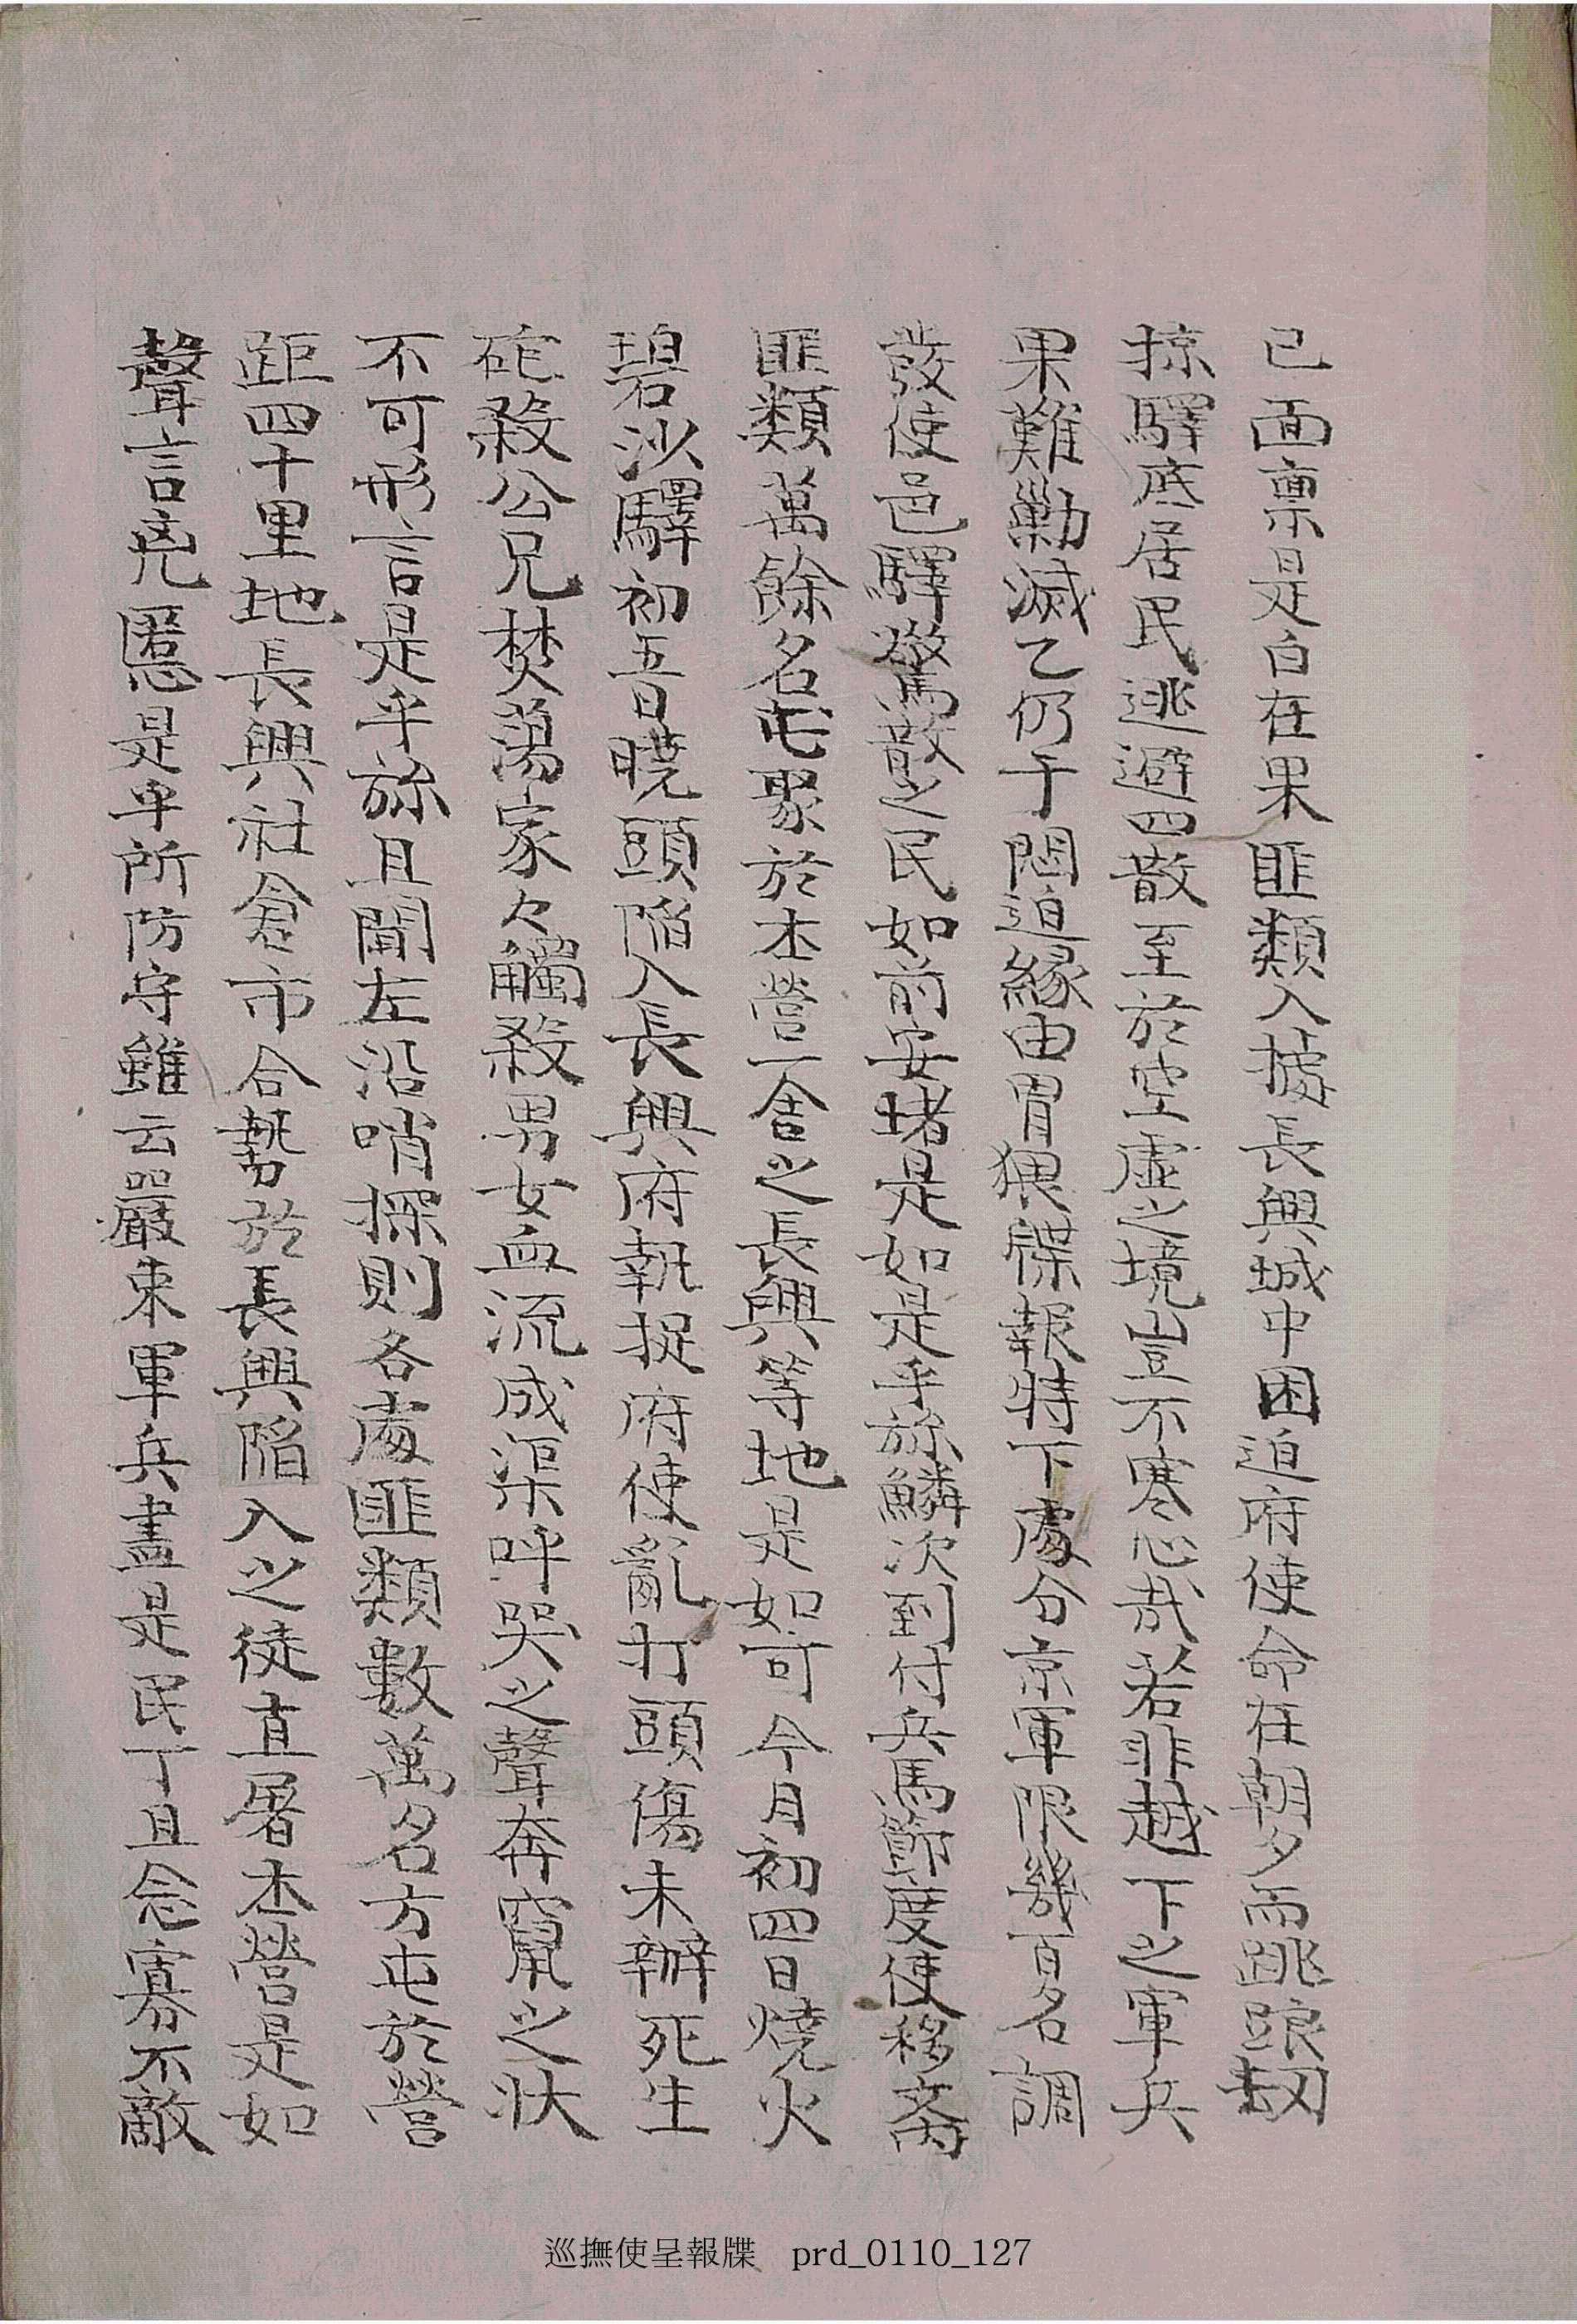 已面稟是白在果匪類入據長興城中困迫府使命在朝夕而跳踉刼
掠驛底居民逃避四散至於空虛之境豈不寒心哉若非越下之軍兵
果難勦滅乙仍于悶迫緣由冒猥牒報特下處分京軍限幾百名調
發使邑驛驚散之民如前安堵是如是乎旀鱗次到付兵馬節度使移文內
匪類萬餘名屯聚於本營一舍之長興等地是如可今月初四日燒火
碧沙驛初五日曉頭陷入長興府執捉府使亂打頭傷未辦死生
砲殺公兄焚蕩家々觸殺男女血流成渠呼哭之聲奔竄之狀
不可形言是乎旀且聞左沿哨探則各處匪類數萬名方屯於營
距四十里地長興社倉市合勢於長興陷入之徒直屠本營是如
聲言兇慝是乎所防守雖云嚴束軍兵盡是民丁且念寡不敵
巡撫使呈報牒 prd_0110_127